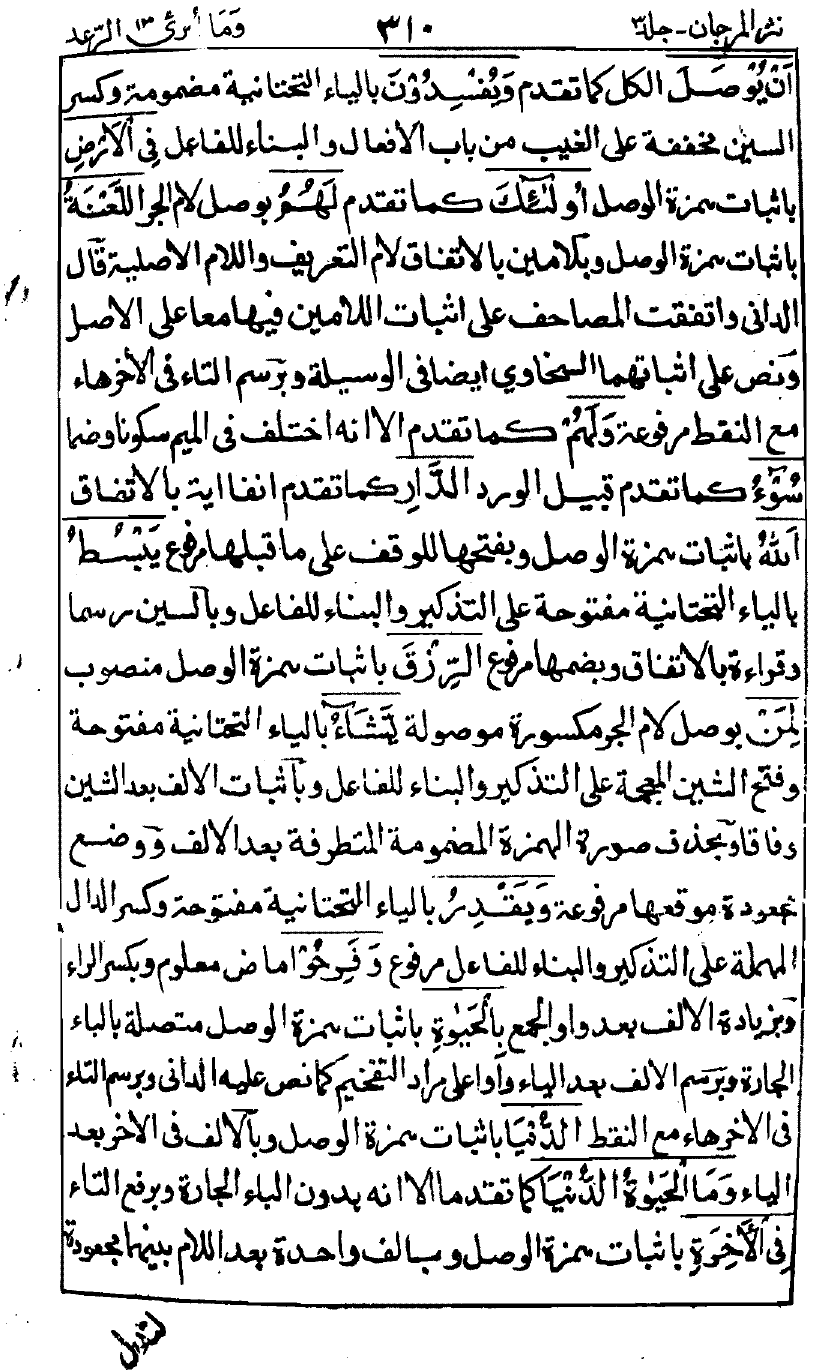 نثر المرجان - جلد ٣ ٣١٠ وَمَا أبرئ ١٣ الرعد
أَنْ يُّوْصَلَ الكل كما تقدم وَيُفْسِدُوْنَ بالياء التحتانية مضمومة وكسر
السين مخففة على الغيب من باب الافعال والبناء للفاعل فِى الْاَرْضِ
باثبات همزة الوصل أُولٰٓئِكَ كما تقدم لَهُمُ بوصل لام الجر اللَّعْنَةُ
باثبات همزة الوصل وبكلامين بالاتفاق لام التعريف واللام الاصلية قال
الدانى واتفقت المصاحف على اثبات اللامين فيها معا على الاصل
ونص على اثباتهما السخاوي ايضا فى الوسيلة وبرسم التاء فى الأخر هاء
مع النقط مرفوعة وَلَهُمْ كما تقدم الا انه اختلف فى الميم سكونا وضما
سُوْٓءُ كما تقدم قبيل الورد الدَّارِ كما تقدم انفا اية بالاتفاق
اَللهُ باثبات همزة الوصل وبفتحها للوقف على ما قبلها مرفوع يَبْسُطُ
بالياء التحتانية مفتوحة على التذكير والبناء للفاعل وبالسين رسما
وقراءة بالاتفاق وبضمها مرفوع الرِّزْقَ باثبات همزة الوصل منصوب
لِمَنْ بوصل لام الجر مكسورة موصولة يَّشَآءُ بالياء التحتانية مفتوحة
وفتح الشين المعجمة على التذكير والبناء للفاعل وبآثبات الالف بعد الشين
وفاقا وبحذف صورة الهمزة المضمومة المتطرفة بعد الالف ووضع
جعودة موقعها مرفوعة وَيَقْدِرُ بالياء التحتانية مفتوحة وكسر الدال
المهملة على التذكير والبناء للفاعل مرفوع وَفَرِحُوْا ماض معلوم وبكسر الراء
وبزيادة الالف بعد واو الجمع بِالْحَيٰوةِ باثبات همزة الوصل متصلة بالباء
الجارة وبرسم الالف بعد الياء واوا على مراد التفخيم كما نص عليه الدانى وبرسم التاء
فى الاخر هاء مع النقط الدُّنْيَا باثبات همزة الوصل وبالالف فى الاخر بعد
الياء وَمَا الْحَيٰوةُ الدُّنْيَا كما تقدما الا انه بدون الباء الجارة وبرفع التاء
فِى الْاٰخِرَةِ باثبات همزة الوصل وبالف واحدة بعد اللام بينهما مجعودة